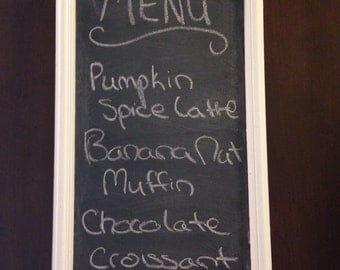 MENU
Pumpkin
Spice Latte
Banana Nut
Muffin
Chocolate
Croissant